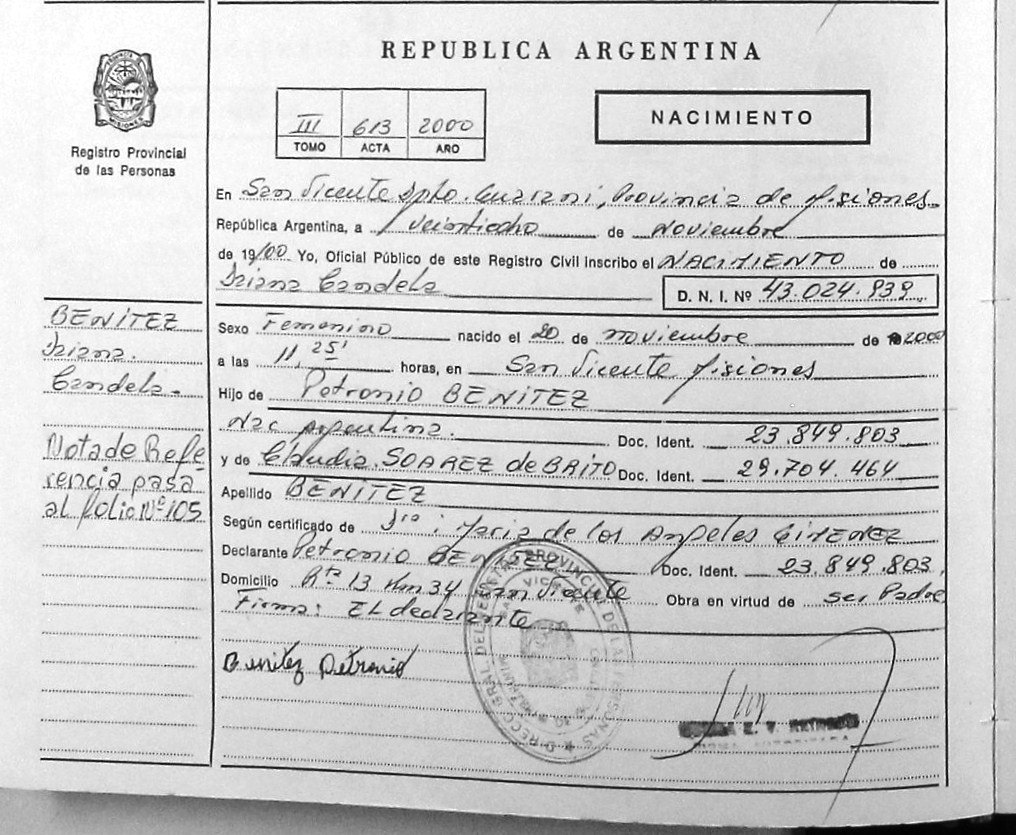 REPUBLICA ARGENTINA
PROVINCIA DE MISIONES
Registro Provincial
de las Personas
III 613 2000
TOMO ACTA AÑO
NACIMIENTO
En San Vicente Dpto. Guaraní, Provincia de Misiones
República Argentina, a Veintiocho de Noviembre
de 19/00 Yo, Oficial Público de este Registro Civil inscribo el NACIMIENTO de
Iriana Candela
D. N. I. Nº 43.024.939
BENÍTEZ
Iriana
Candela.-
Nota de Refe
rencia pasa
al folio Nº 105
Sexo Femenino nacido el 20 de noviembre de 2000
a las 11,25' horas, en San Vicente Misiones
Hijo de Petronio BENÍTEZ
Nac Argentina. Doc. Ident. 23.849.803
y de Claudia SOAREZ de BRITO Doc. Ident. 29.704.464
Apellido BENÍTEZ
Según certificado de Dra: Maria de los Angeles GIMENEZ
Declarante Petronio BENITEZ Doc. Ident. 23.849.803.
Domicilio Rta 13 Km 34 San Vicente Obra en virtud de ser Padre
Firma: El declarante
Benitez Petronio
PROVINCIAL DE LAS PERSONAS